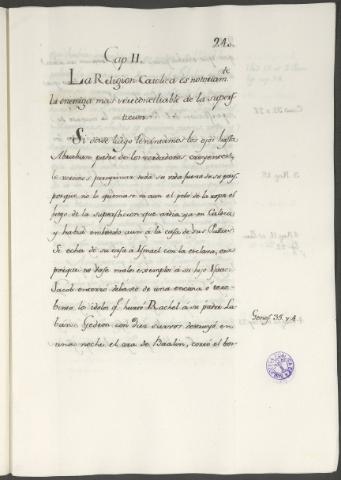 24.
Cap II.
La Religion Catolica es notoriam.te
la enemiga mas irreconciliable de la supers
ticion.
Si desde luego levantamos los ojos hasta
Abraham padre de los verdaderos creyentes,
le veremos peregrinar toda su vida fuera de su pays,
porque no le quemase ni aun el pelo de la ropa el
fuego de la supersticion que ardia ya en Caldea,
y habia entrado aun à la casa de sus
Si echa de su casa à Ysmael con la esclava, era
porque no dase malos exemplos à su hijo Ysaac.
Jacob encerró debaxo de una encina ò tere-
binto los idolos q.e hurtó Rachel à su padre La-
ban. Gedeon con diez siervos destruyó en
una noche el ara de Baalin, cortó el bos-
Genes. 35. v. 4.